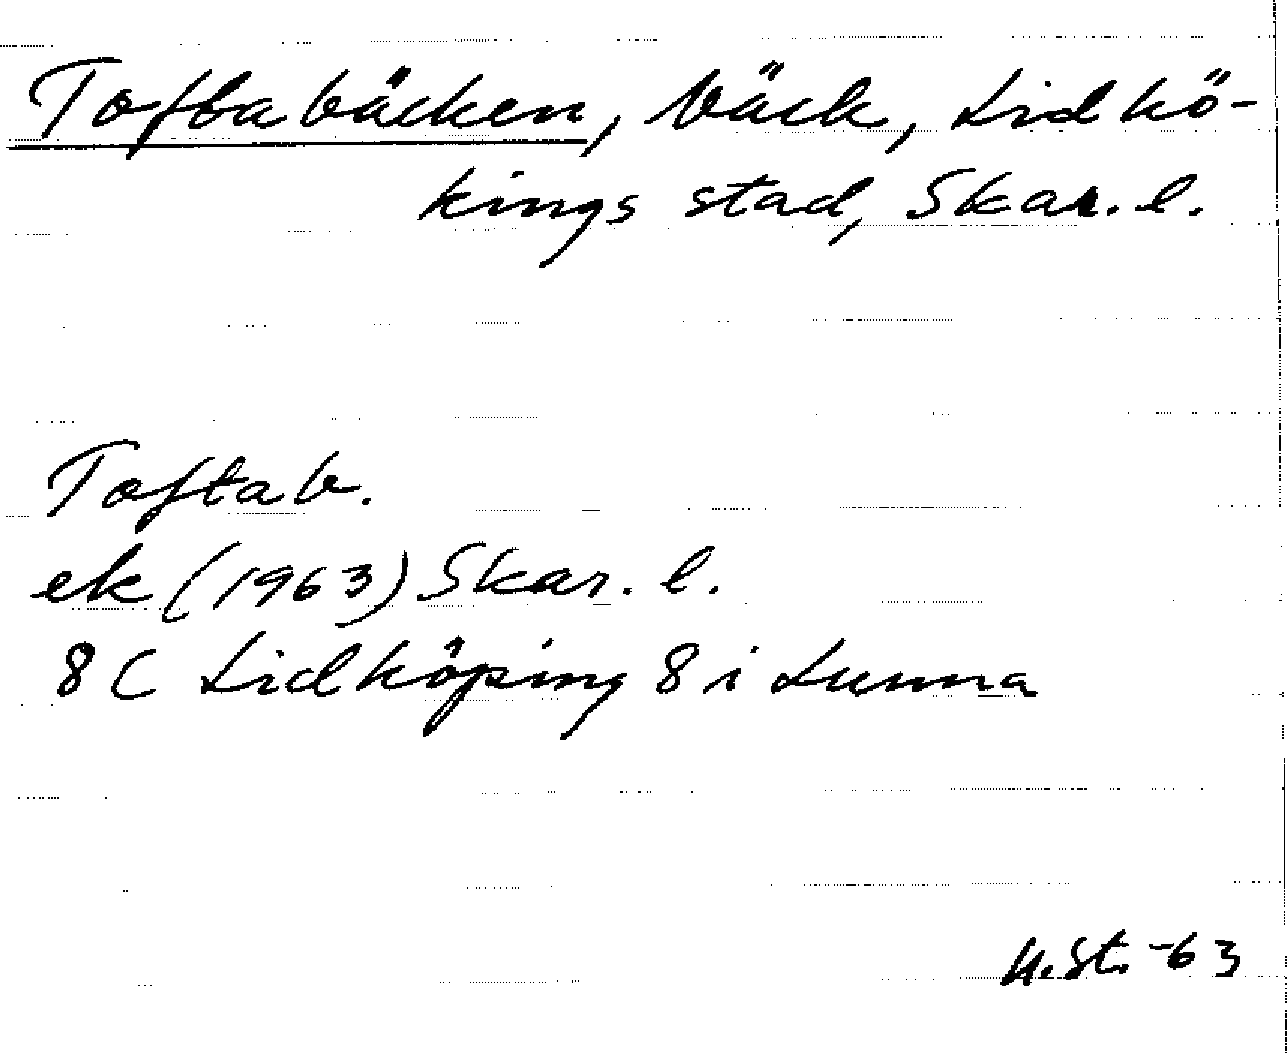 Toftabäcken, bäck, Lidkö-
kings stad, Skar. l.
Toftab.
ek (1963) Skar. l.
8C Lidköping 8 i Lunna
U.St. -63